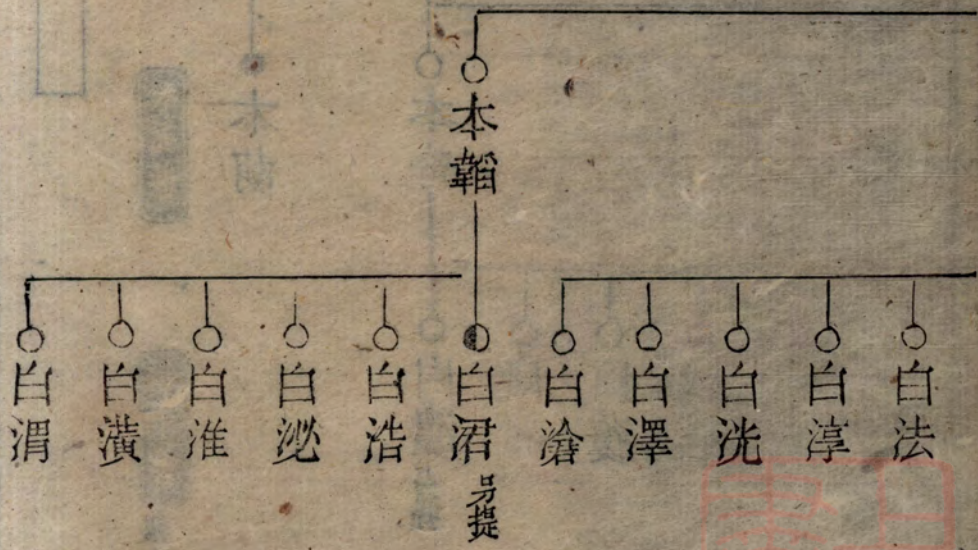 本韜
白法
白淳
白洸
白澤
白滄
白涒
另提
白浩
白泌
白淮
白潢
白渭